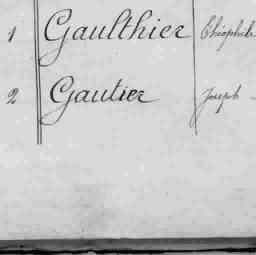 1 Gaulthier Théophile
2 Gautier Joseph